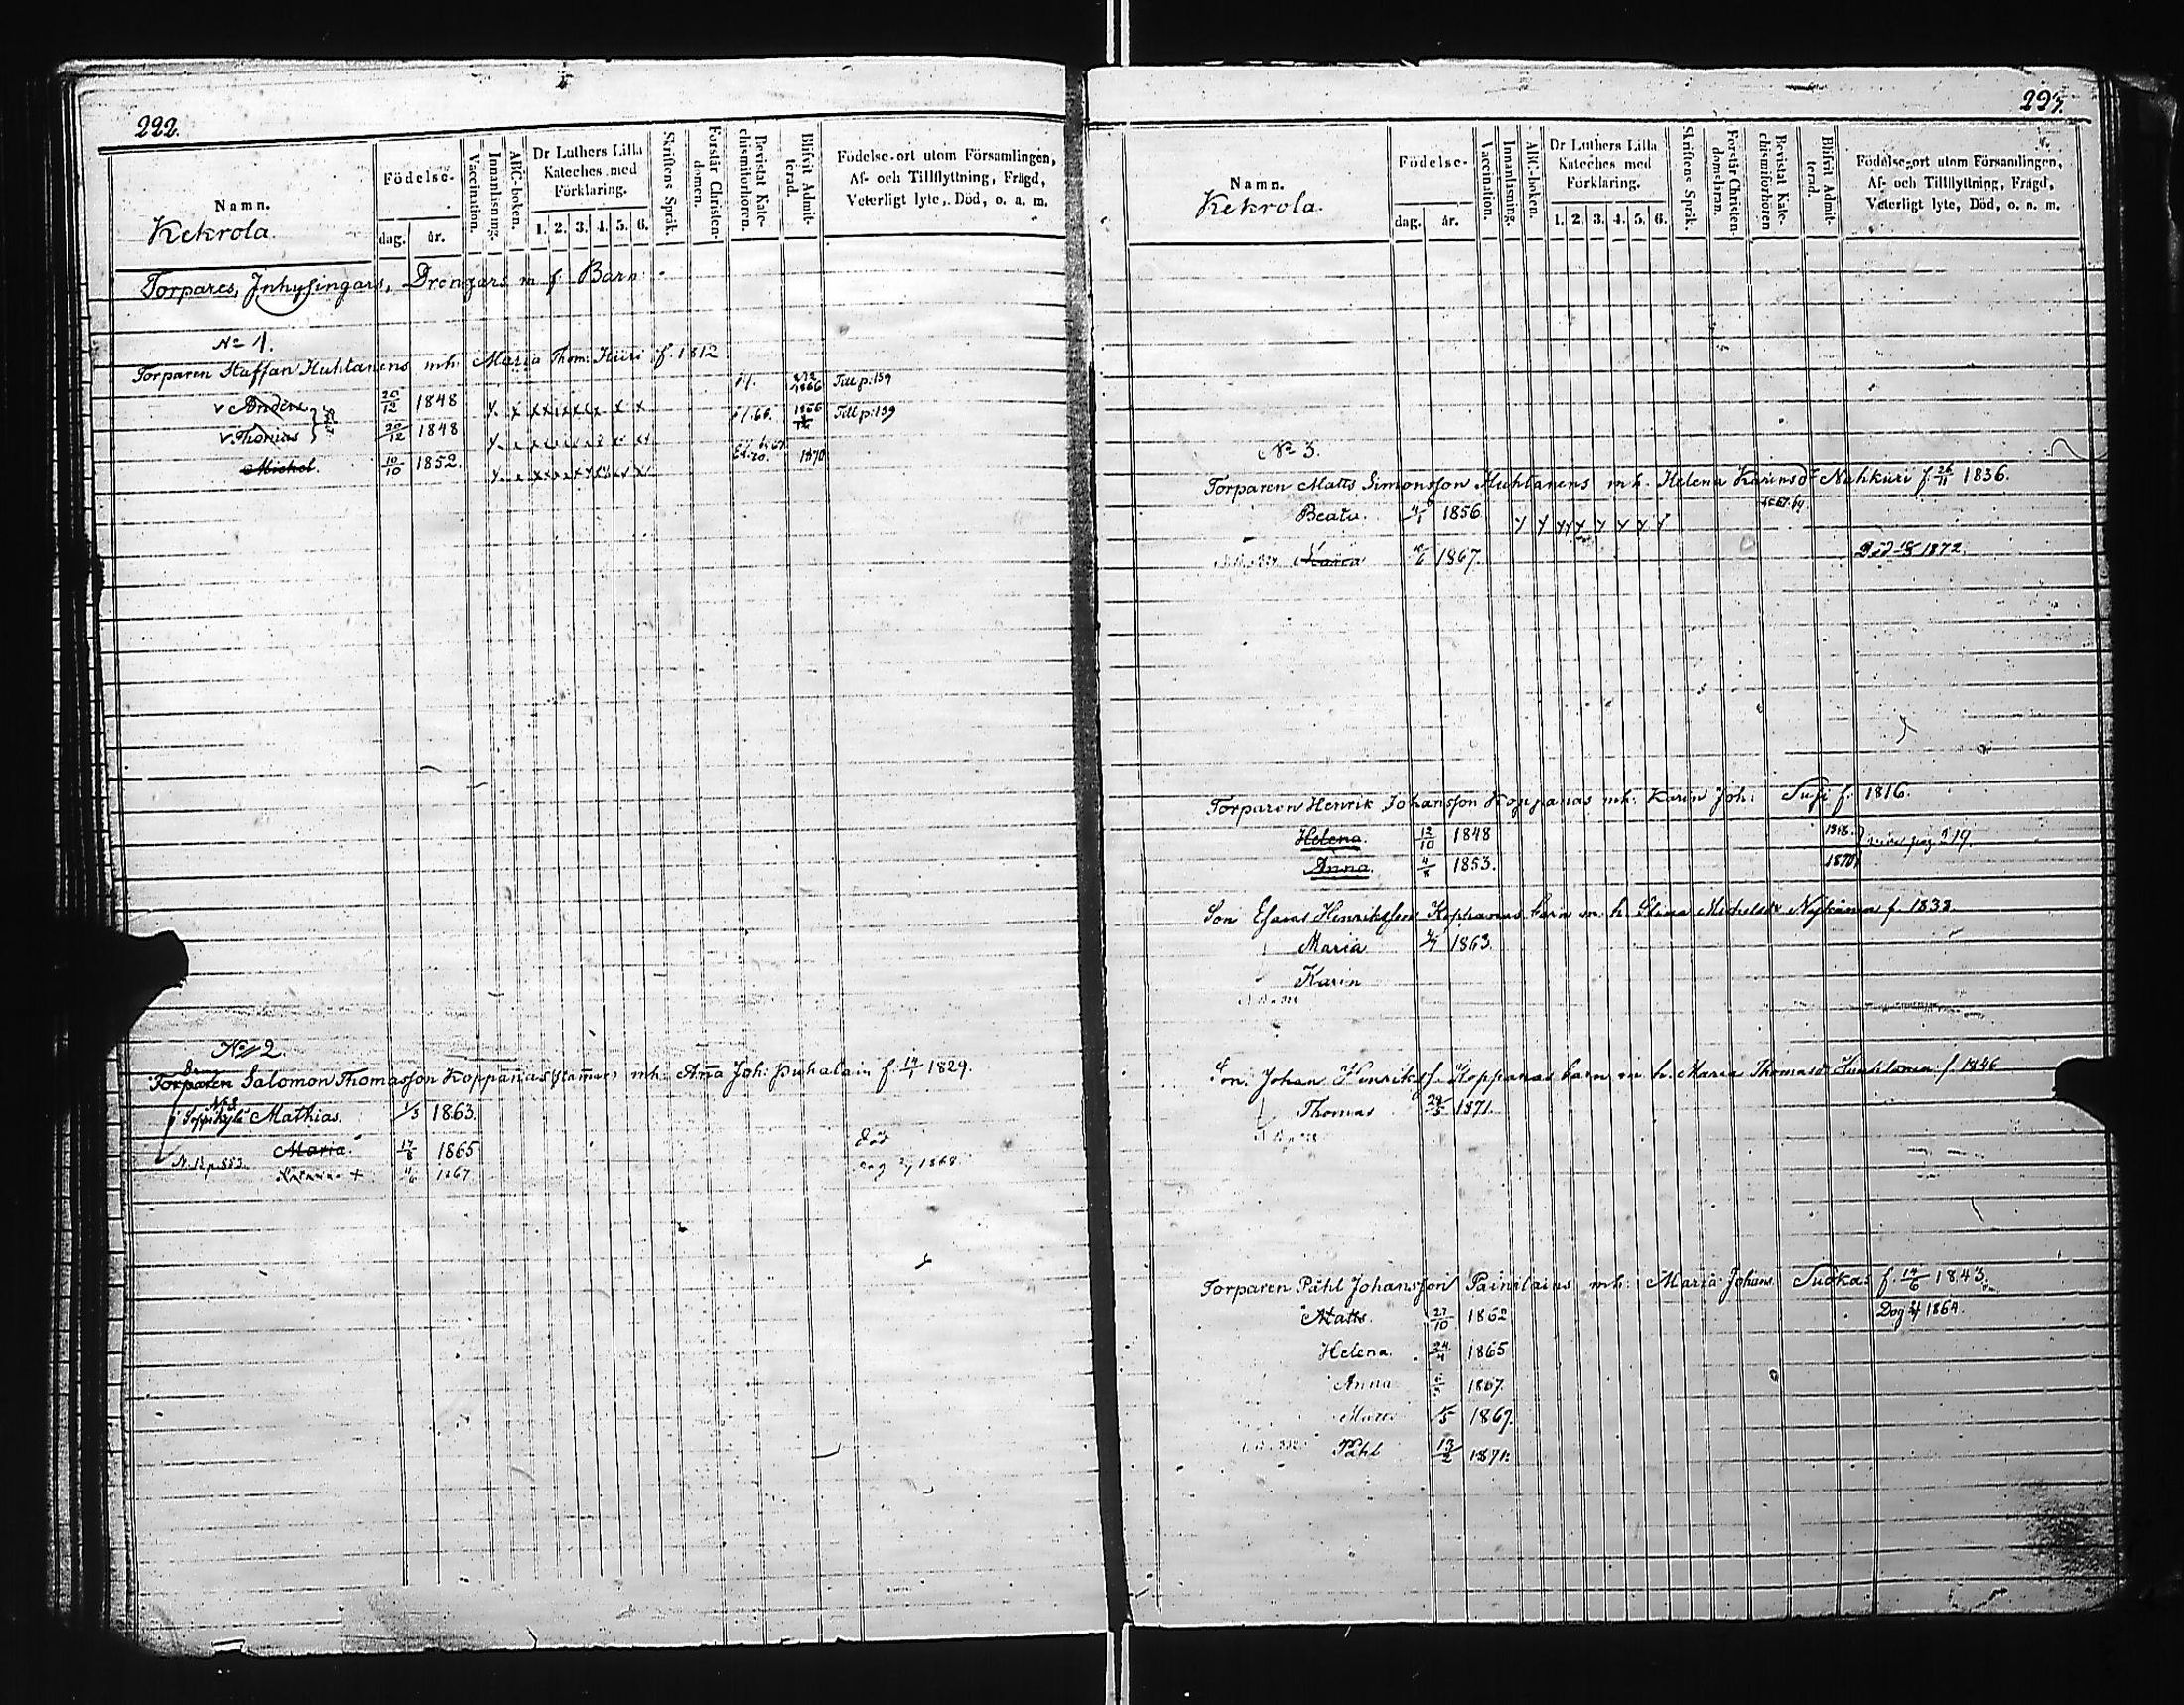 222.
Namn.
Kekrola.
Födelse-
dag. år.
Vaccination.
Innanläsning.
ABC-boken.
Dr Luthers Lilla Kateches med Förklaring.
1. 2. 3. 4. 5. 6.
Skriftens Språk.
Förstår Christen-domen.
Bevistat Kate-chismiförhören.
Blifvit Admit-terad.
Födelse-ort utom Församlingen,
Af- och Tillflyttning, Frägd,
Veterligt lyte, Död, o. a. m.
Torpares, Inhysingars, Drengars m. f. Barn
No 1.
Torparen Staffan Huhtanens mh. Maria Thom: Kuri f. 1812
Anders 20/12 1848 1866 Till p: 159
Thomas 20/12 1848 1866 Till p: 159
Michel. 10/10 1852. 1870
No 2.
Torparen Salomon Thomasson Koppanas mh. Ana Joh: Puhalain f. 14/1 1829.
Mathias. 1/3 1863.
Maria. 17/8 1865 död
1867 1868.
223.
Namn.
Kekrola.
Födelse-
dag. år.
Vaccination.
Innanläsning.
ABC-boken.
Dr Luthers Lilla Kateches med Förklaring.
1. 2. 3. 4. 5. 6.
Skriftens Språk.
Förstår Christen-domsläran.
Bevistat Kate-chismiförhören
Blifvit Admit-terad.
Födelse-ort utom Församlingen,
Af- och Tillflyttning, Frägd,
Veterligt lyte, Död, o. a. m.
No 3.
Torparen Matts Simonsson Huhtanens mh. Helena Karinsdr Nahkuri f. 26/11 1836.
Beata. 1856
1867. Död 1872.
Torparen Henrik Johansson Koppanas mh: Karin Joh: Susi f. 1816.
Helena. 12/10 1848 1868. pag 219.
Anna. 4/8 1853. 1870
Son Esaias Henriksson Koppanas barn m. h. Stina Michelsdr f. 1833.
Maria 1863.
Karin
Son Johan Henrikss. Koppanas barn m h. Maria Thomasdr f. 1846
Thomas 29/5 1871.
Torparen Påhl Johansson Painilains mh: Maria Johans. Suokas f. 14/6 1843.
Matts. 27/10 1862 Dog 1864.
Helena. 24/4 1865
Anna 1867.
1869.
Påhl 13/2 1871.